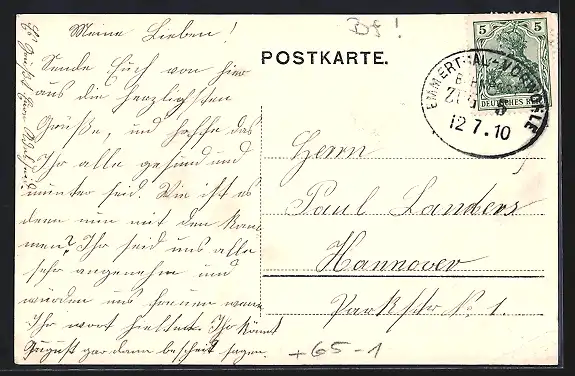 Meine Lieben!
Sende Euch von hier
aus die herzlichsten
Grüße, und hoffe das
Ihr alle gesund und
munter seid. Wie ist es
denn nun mit dem kom
men? Ihr seid uns alle
sehr angenehm und
würden uns freuen wenn
Ihr wort hieltet. Ihr könnt
August gar dann bescheit sagen.
Es grüßt Euer
POSTKARTE.
5 5
DEUTSCHES REICH
EMMERTHAL-VORWOHLE
ZUG 8
12 7.10
Herrn
Paul Landers
Hannover
Parkstr No. 1.
+65-1